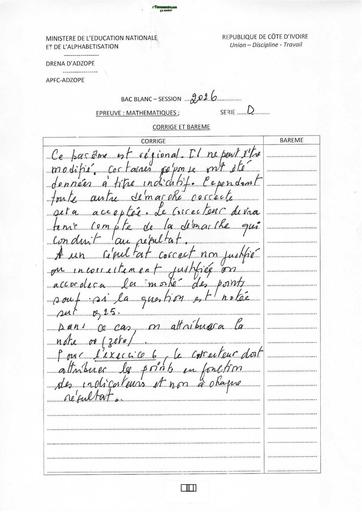 MINISTERE DE L'EDUCATION NATIONALE
ET DE L'ALPHABETISATION
DRENA D'ADZOPE
APFC-ADZOPE
REPUBLIQUE DE CÔTE D'IVOIRE
Union – Discipline - Travail
BAC BLANC – SESSION 2026
EPREUVE : MATHEMATIQUES ; SERIE D
CORRIGE ET BAREME
CORRIGE
BAREME
Ce barême est régional. Il ne peut être
modifié. Certaines réponse ont été
données à titre indicatif. Cependant
toute autre démarche correcte
sera acceptée. Le correcteur devra
tenir compte de la démarche qui
conduit au résultat.
A un résultat correct non justifié
ou incorrectement justifié on
accordera la moitié des points
sauf si la question est notée
sur 0,25.
Dans ce cas, on attribuera la
note 00 (zéro)
Pour l'exercice 6, le correcteur doit
attribuer les points en fonction
des indicateurs et non à chaque
résultat.